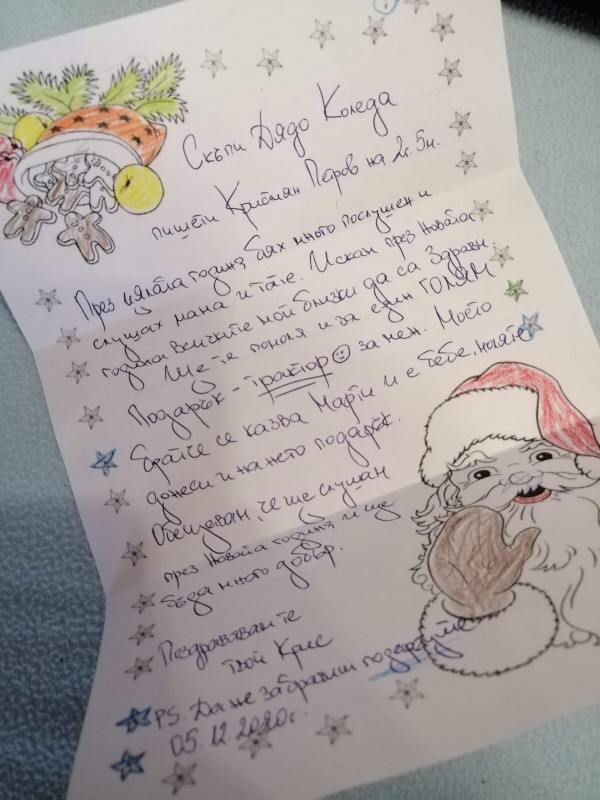 Скъпи Дядо Коледа
пишети Кристиян Петров на 2г. 5м.
През цялата година бях много послушен и
слушах мама и тате. Искам през новата
година всичките мои близки да са здрави.
Ще те помоля и за един ГОЛЯМ
Подарък - трактор ☺ за мен. Моето
братче се казва Марти и е бебе, моля те
донеси и на него подарък.
Обещавам, че ще слушам
през Новата година и ще
бъда много добър.
Поздравявам те
твой Крис
PS. Да не забравиш подаръците
05.12.2020г.